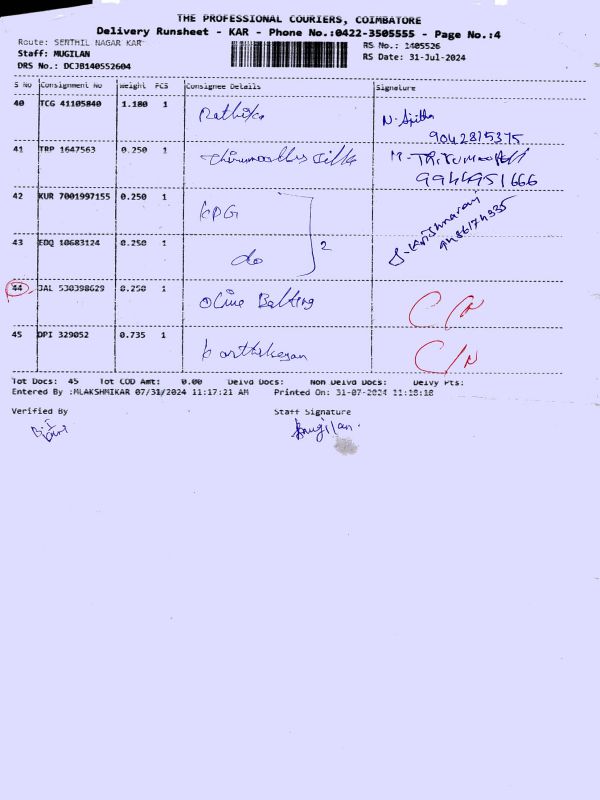 THE PROFESSIONAL COURIERS, COIMBATORE
Delivery Runsheet - KAR - Phone No.:0422-3505555 - Page No.:4
Route: SENTHIL NAGAR KAR
RS No.: 1405526
Staff: MUGILAN
RS Date: 31-Jul-2024
DRS No.: DCJB140552604
S No Consignment No Weight PCS Consignee Details Signature
40 TCG 41105840 1.180 1 Rathika
9042815375
41 TRP 1647563 0.250 1 Thirumoorthy Silks
9944951666
42 KUR 7001997155 0.250 1 KPG
2
43 EDQ 10683124 0.250 1 do
44 JAL 530398629 0.250 1 Olive Belting C/N
45 DPI 329052 0.735 1 Karthikeyan C/N
Tot Docs: 45 Tot COD Amt: 0.00 Delvd Docs: Non Delvd Docs: Delvy Pts:
Entered By :MLAKSHMIKAR 07/31/2024 11:17:21 AM Printed On: 31-07-2024 11:18:18
Verified By Staff Signature
Mugilan.